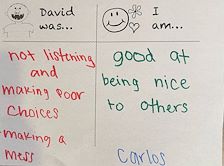 David
was...
I
am...
not listening
and
making poor
choices
making a
mess
good at
being nice
to others
Carlos